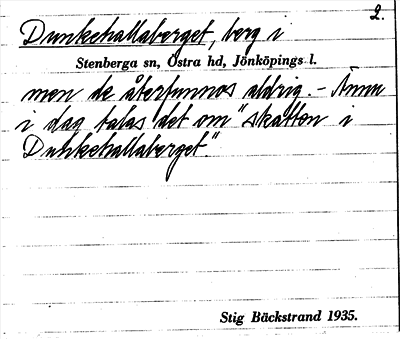 2.
Dunkehallaberget, berg i
Stenberga sn, Östra hd, Jönköpings l.
men de återfunnos aldrig. - Ännu
i dag talas det om "skatten i
Dunkehallaberget".
Stig Bäckstrand 1935.